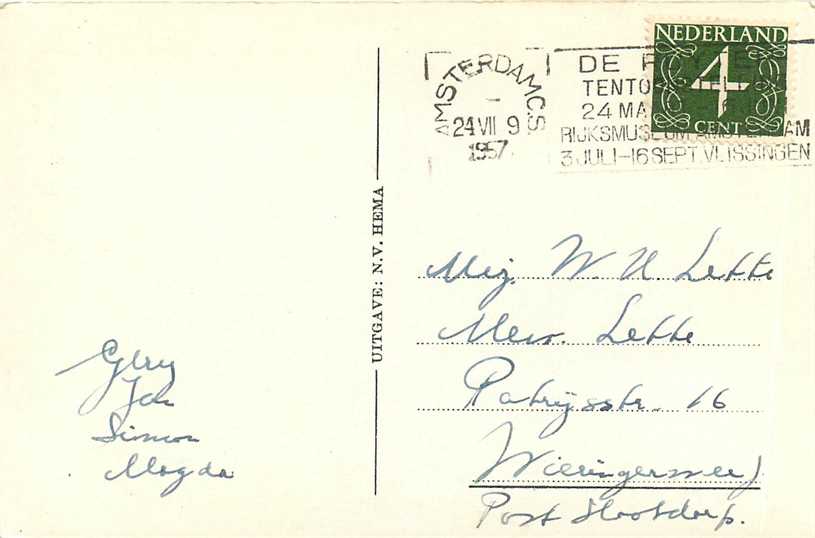 NEDERLAND
4
CENT
AMSTERDAM C.S
24 VII 9
1957
DE
TENTO
24 MA
RIJKSMUSEUM AMSTERDAM
3 JULI-16 SEPT. VLISSINGEN
UITGAVE: N.V. HEMA
Mej. W. H. Lette
Mevr. Lette
Patrijsstr. 16
Wieringermeer
Post Slootdorp.
Gerry
Jan
Simon
Magda